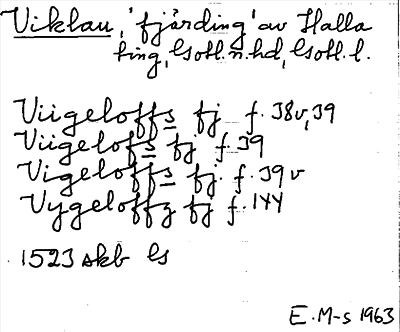 Viklau, 'fjärding' av Halla
ting, Gotl. n. hd, Gotl. l.
Viigeloffs fj f. 38v, 39
Viigelofs fj f. 39
Vigeloffs fj. f. 39 v
Vygeloffz fj f. 144
1523 skb Gs
E. M-s 1963